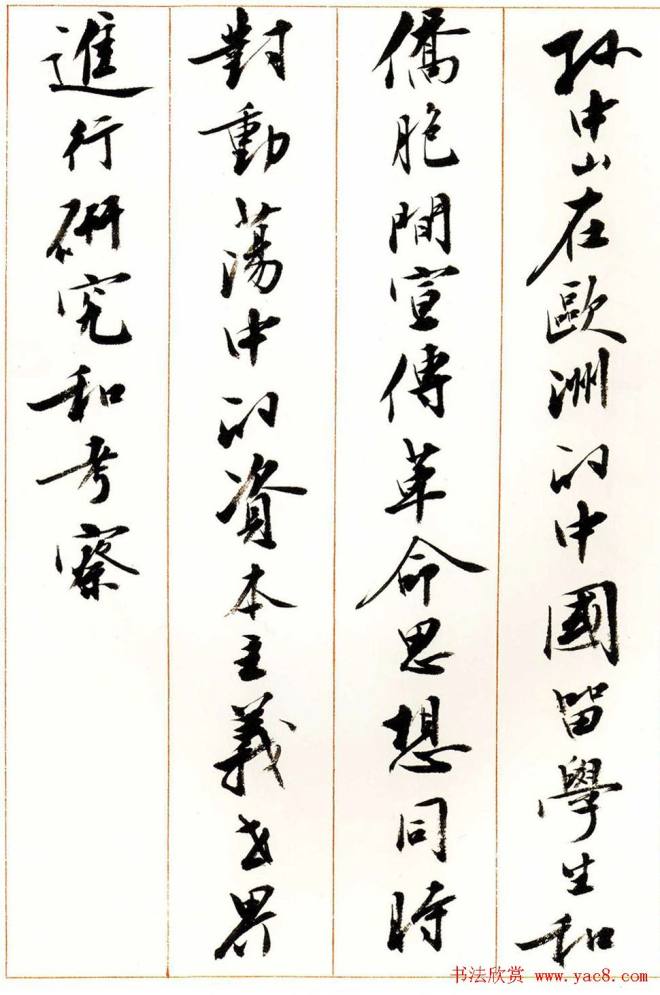 孙中山在歐洲的中國留學生和
僑胞間宣傳革命思想同時
對動蕩中的資本主義世界
進行研究和考察
书法欣赏 www.yac8.com